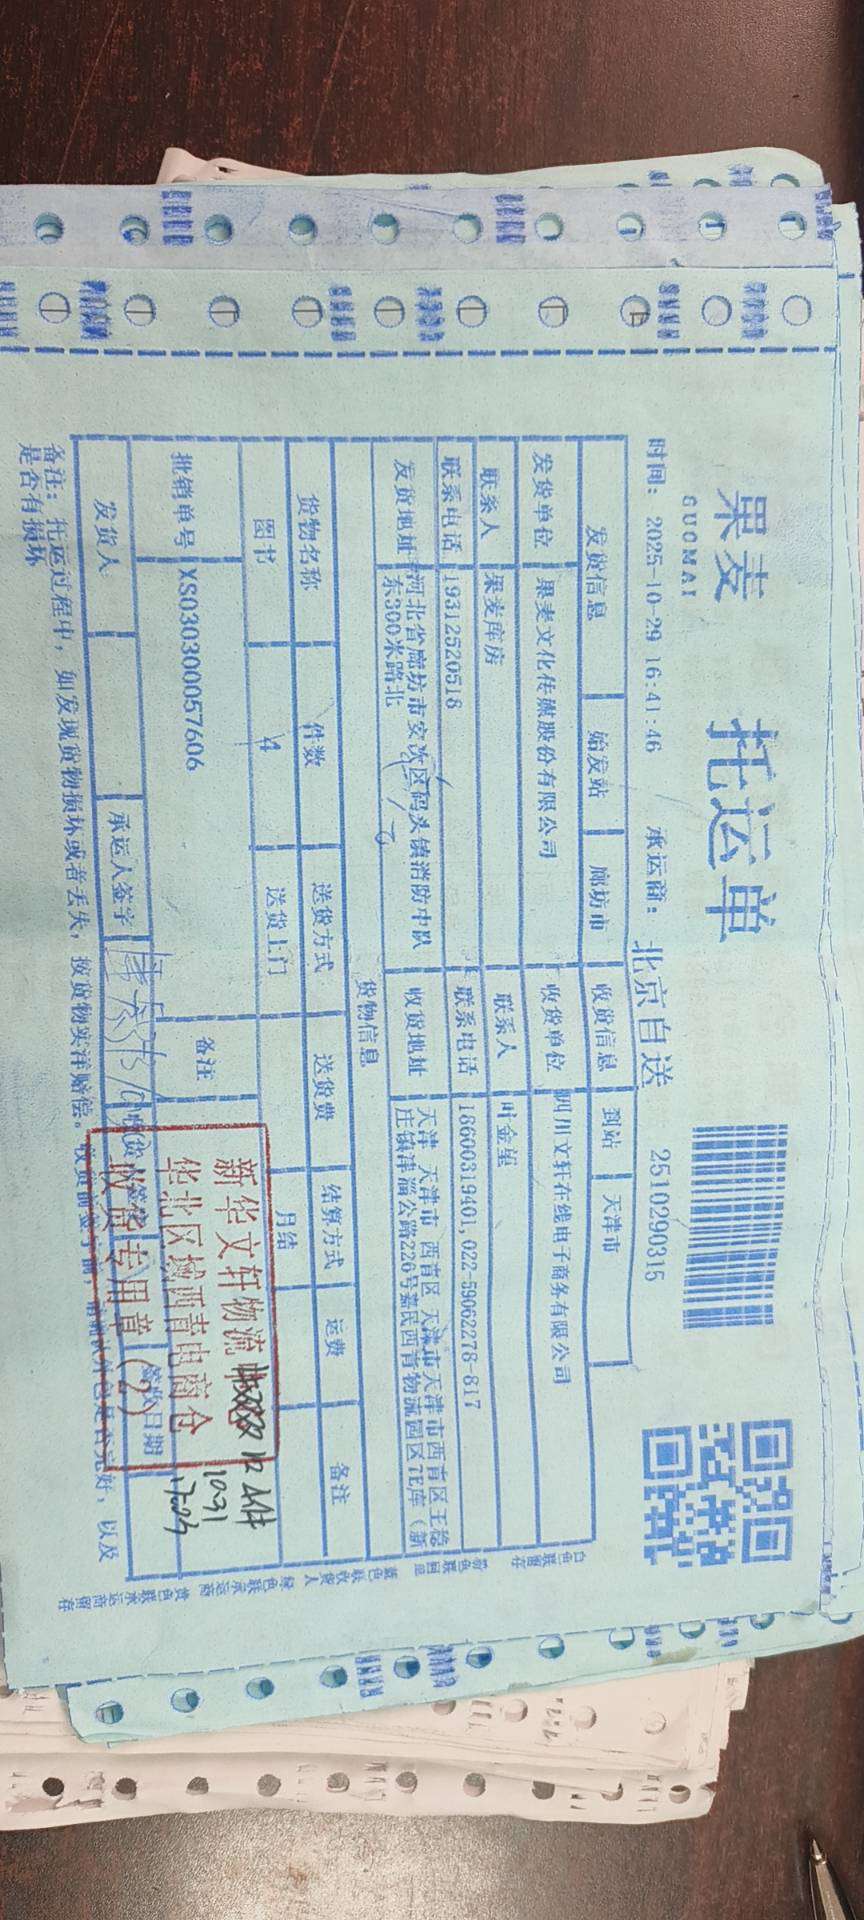 果麦
GUOMAI
托运单
2510290315
时间: 2025-10-29 16:41:46 承运商: 北京自送
发货信息 始发站 廊坊市 收货信息 到站 天津市
发货单位 果麦文化传媒股份有限公司 收货单位 四川文轩在线电子商务有限公司
联系人 果麦库房 联系人 叶金奎
联系电话 19312520518 联系电话 18600319401,022-59062278-817
发货地址 河北省廊坊市安次区码头镇消防中队东300米路北 收货地址 天津 天津市 西青区 天津市天津市西青区王稳庄镇津淄公路226号嘉民西青物流园区7E库（新
货物信息
货物名称 件数 送货方式 送货费 结算方式 运费 备注
图书 4 送货上门 月结
批销单号 XS030300057606 备注
发货人 承运人签字 签收日期
新华文轩物流
华北区域西青电商仓
收货专用章
(2)
10.31
17:03
备注: 托运过程中, 如发现货物损坏或者丢失, 按货物实洋赔偿。收货前签字前, 请确认外包是否完好, 以及
是否有损坏
白色联留存
粉色联回单
蓝色联收货人
绿色联承运商
黄色联承运商留存